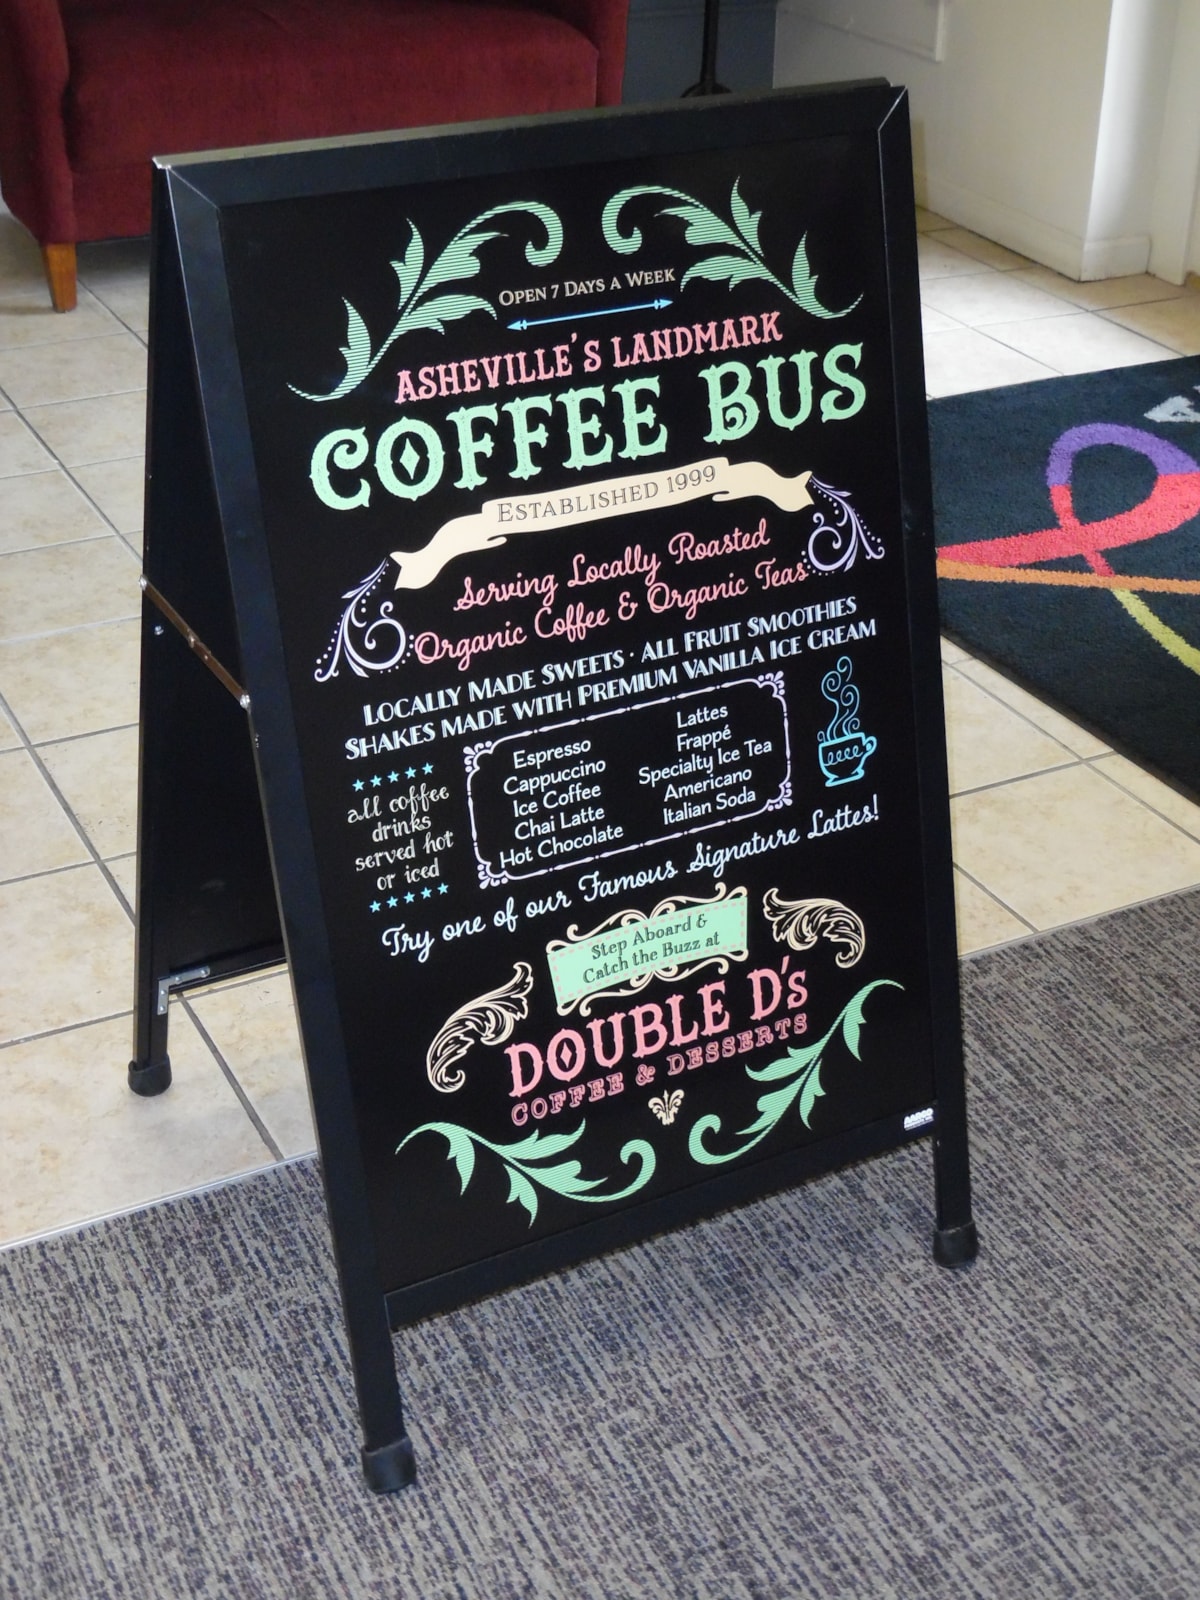 Open 7 Days a Week
Asheville's Landmark
Coffee Bus
Established 1999
Serving Locally Roasted
Organic Coffee & Organic Teas
Locally Made Sweets · All Fruit Smoothies
Shakes made with Premium Vanilla Ice Cream
all coffee
drinks
served hot
or iced
Espresso
Cappuccino
Ice Coffee
Chai Latte
Hot Chocolate
Lattes
Frappé
Specialty Ice Tea
Americano
Italian Soda
Try one of our Famous Signature Lattes!
Step Aboard &
Catch the Buzz at
Double D's
Coffee & Desserts